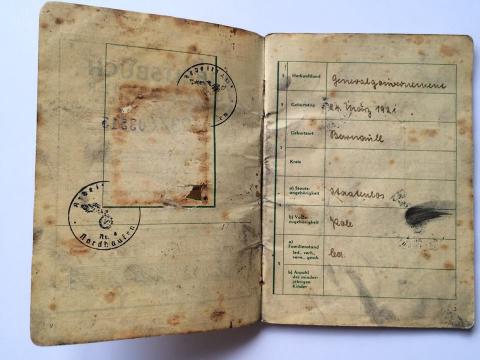 Arbeitsamt
Arbeitsamt
Nr. 8
Nordhausen
1
Herkunftsland
Generalgouvernement
2
Geburtstag
24. März 1921
Geburtsort
Barnaull
Kreis
3
a) Staats-
angehörigkeit
Staatenlos
b) Volks-
zugehörigkeit
Pole
4
a)
Familienstand
led., verh.,
verw., gesch.
led.
b) Anzahl
der minder-
jährigen
Kinder
3